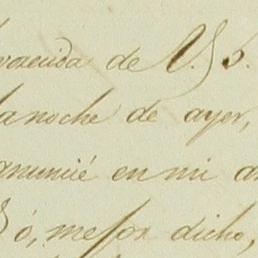 de V. S.
la noche de ayer,
anuncié en mi
ó, mejor dicho,